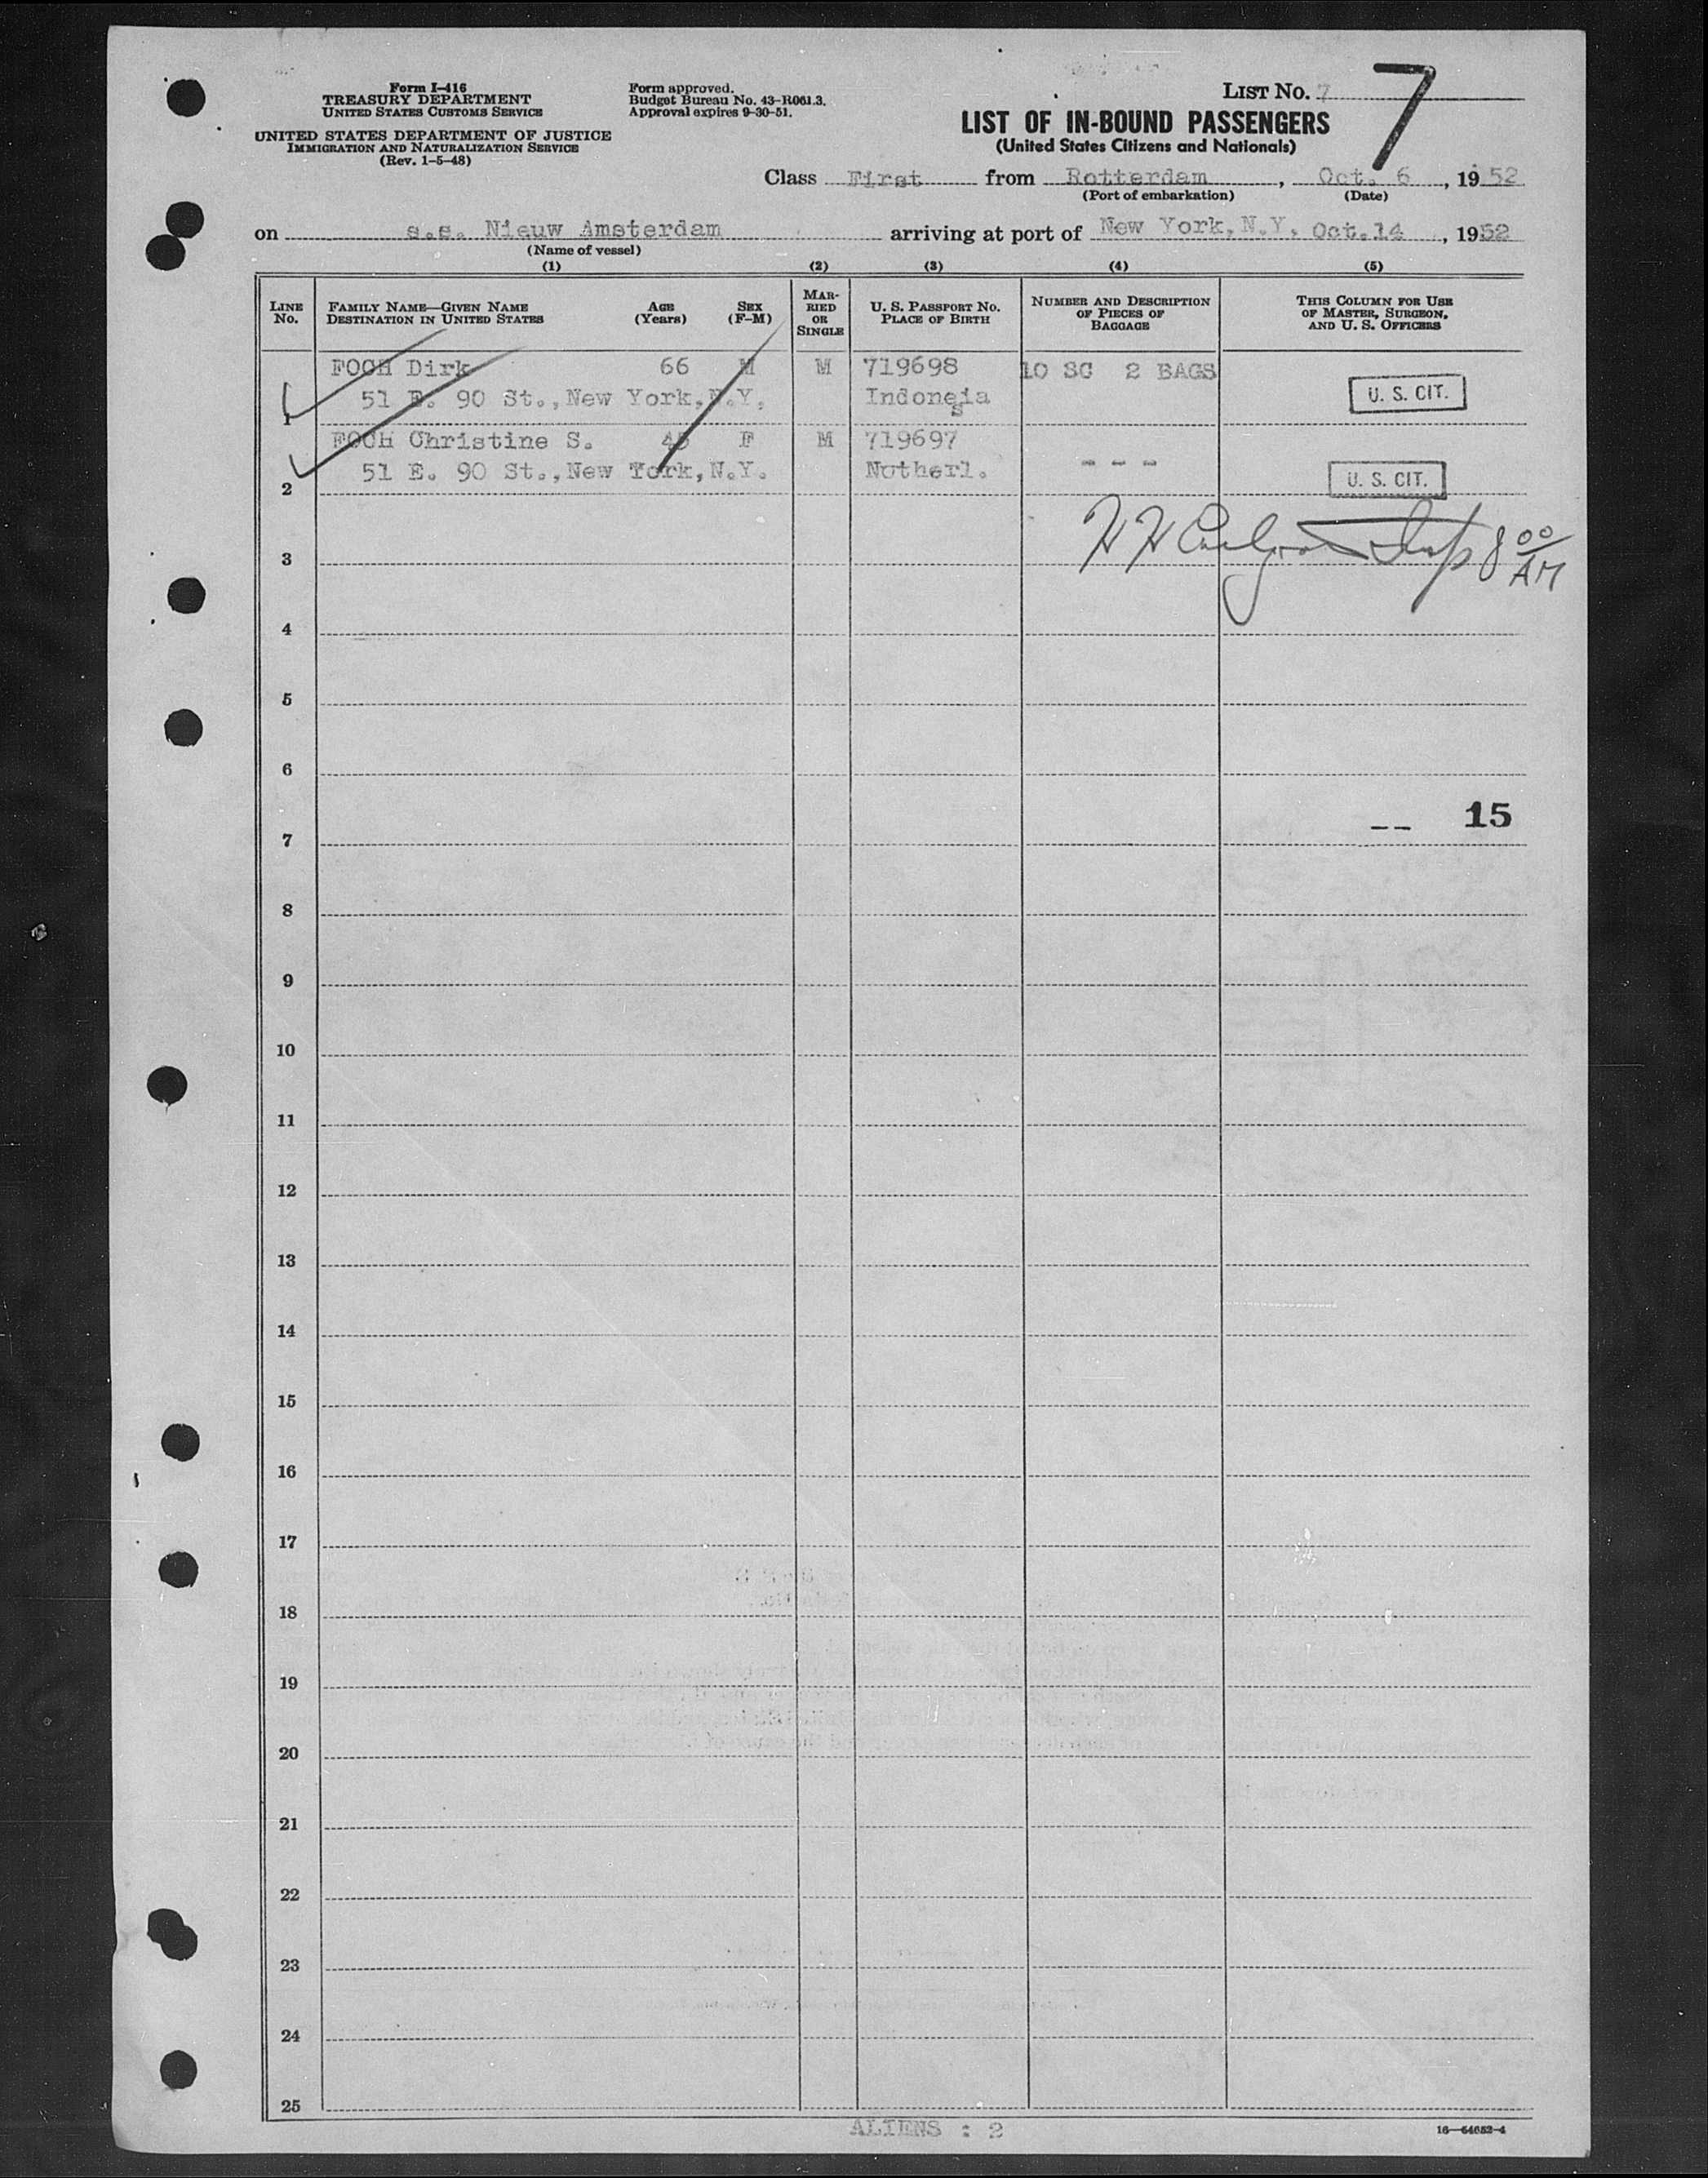 Form I-416
TREASURY DEPARTMENT
UNITED STATES CUSTOMS SERVICE
UNITED STATES DEPARTMENT OF JUSTICE
IMMIGRATION AND NATURALIZATION SERVICE
(Rev. 1-5-48)
Form approved.
Budget Bureau No. 43-R061.3.
Approval expires 9-30-51.
LIST No. 7 7
LIST OF IN-BOUND PASSENGERS
(United States Citizens and Nationals)
Class First from Rotterdam, Oct. 6, 1952
(Port of embarkation) (Date)
on s.s. Nieuw Amsterdam arriving at port of New York, N.Y, Oct.14, 1952
(Name of vessel)
(1) (2) (3) (4) (5)
LINE No. FAMILY NAME—GIVEN NAME DESTINATION IN UNITED STATES AGE (Years) SEX (F-M) MARRIED OR SINGLE U. S. PASSPORT No. PLACE OF BIRTH NUMBER AND DESCRIPTION OF PIECES OF BAGGAGE THIS COLUMN FOR USE OF MASTER, SURGEON, AND U. S. OFFICERS
FOCH Dirk 66 M M 719698 10 SC 2 BAGS
1 51 E. 90 St., New York, N.Y. Indonesia U. S. CIT.
FOCH Christine S. 45 F M 719697
51 E. 90 St., New York, N.Y. Netherl. - - - U. S. CIT.
2
8 00 AM
3
4
5
6
-- 15
7
8
9
10
11
12
13
14
15
16
17
18
19
20
21
22
23
24
25
ALIENS : 2
16—54652-4